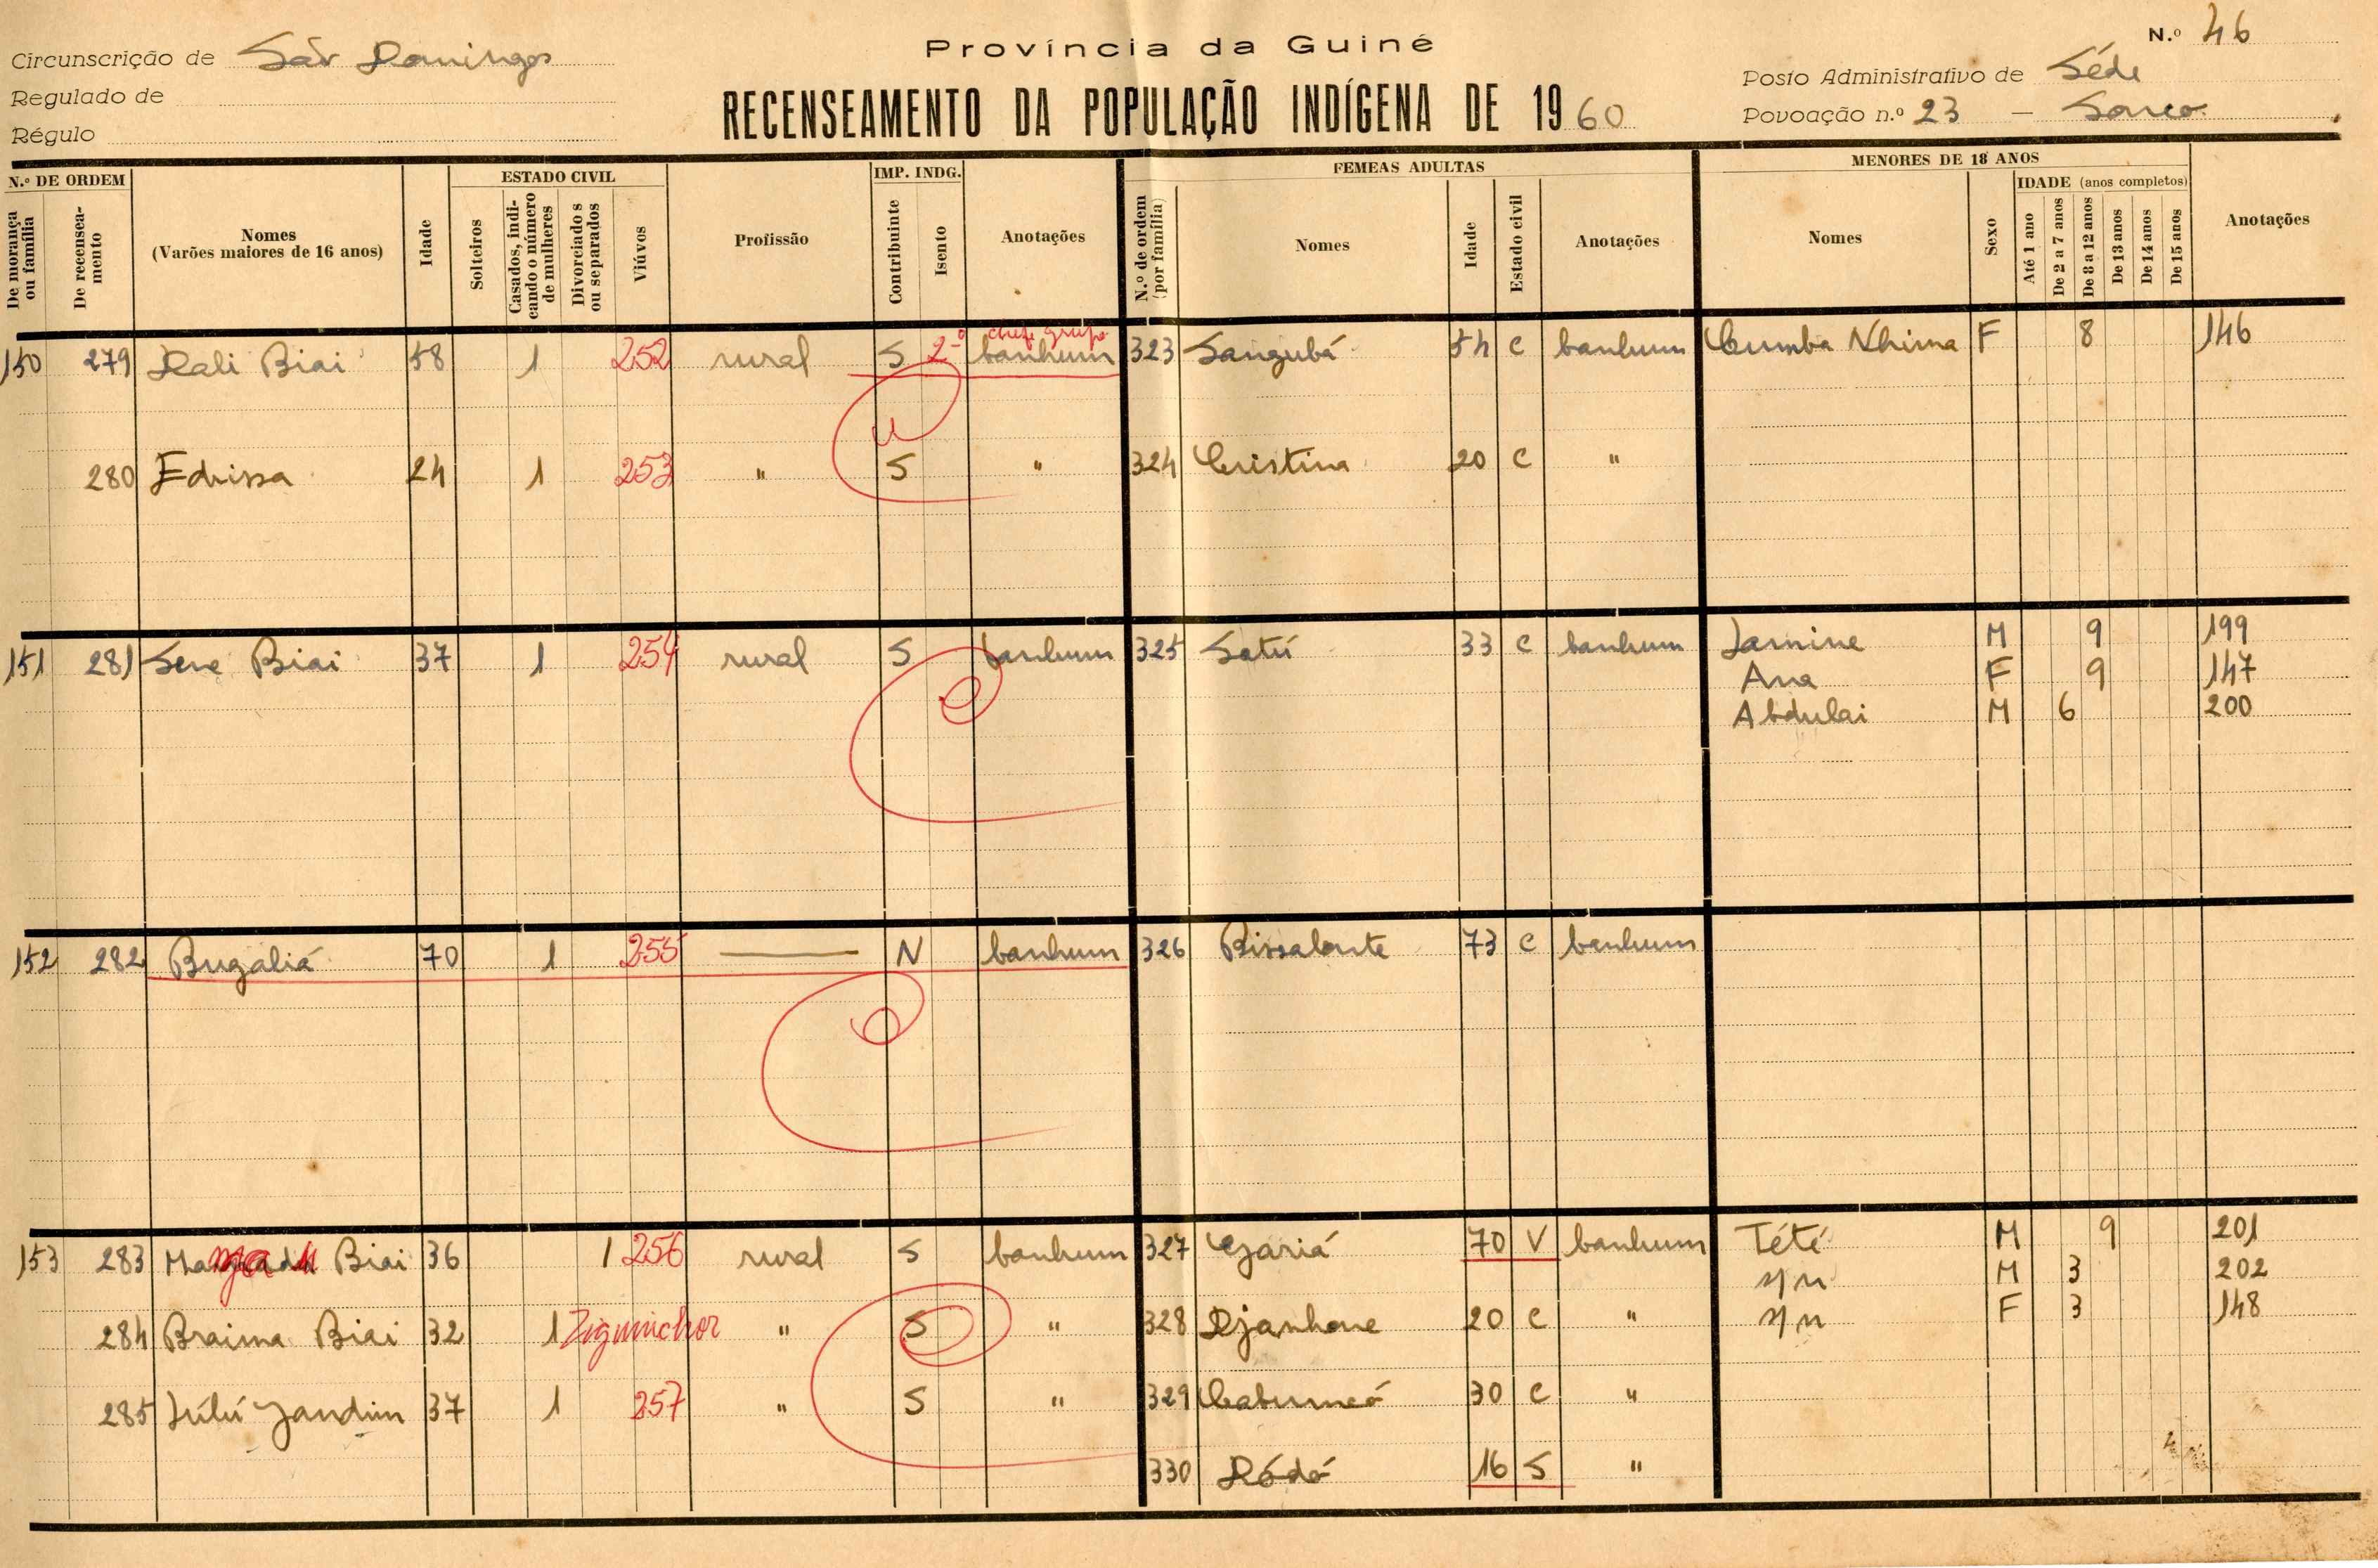 Província da Guiné
N.º 46
Circunscrição de São Domingos
Regulado de
Régulo
RECENSEAMENTO DA POPULAÇÃO INDÍGENA DE 1960
Posto Administrativo de Séde
Povoação n.º 23 —
N.º DE ORDEM
De morança ou família
De recenseamento
Nomes
(Varões maiores de 16 anos)
Idade
ESTADO CIVIL
Solteiros
Casados, indicando o número de mulheres
Divorciados ou separados
Viúvos
Profissão
IMP. INDG.
Contribuinte
Isento
Anotações
FEMEAS ADULTAS
N.º de ordem (por família)
Nomes
Idade
Estado civil
Anotações
MENORES DE 18 ANOS
Nomes
Sexo
IDADE (anos completos)
Até 1 ano
De 2 a 7 anos
De 8 a 12 anos
De 13 anos
De 14 anos
De 15 anos
Anotações
chefe grupo
150 279 Dali Biai 58 1 252 rural S 2º banhum 323 Sangubá 54 C banhum Cumba Nhima F 8 146
280 Edrissa 24 1 253 " S " 324 Cristina 20 C "
151 281 Sene Biai 37 1 254 rural S banhum 325 Satú 33 C banhum Lamine M 9 199
Ana F 9 147
Abdulai M 6 200
152 282 Bugaliá 70 1 255 — N banhum 326 Bissalonte 73 C banhum
153 283 Biai 36 1 256 rural S banhum 327 70 V banhum Tété M 9 201
s/n M 3 202
284 Braima Biai 32 1 Ziguinchor " S " 328 Djanhone 20 C " s/n F 3 148
285 Lúlú Jandim 37 1 257 " S " 329 30 C "
330 Dódó 16 S "